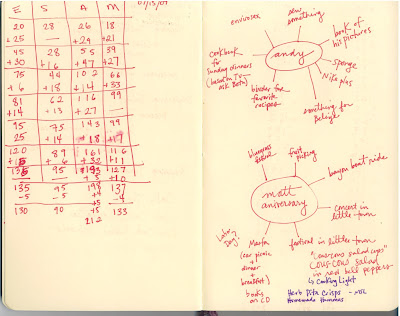 07/15/07
E S A M
20 28 26 18
+25 — +29 +21
45 28 55 39
+30 +16 +47 +27
75 44 102 66
+6 +18 +14 +33
81 62 116 99
+14 +13 +27 —
95 75 143 99
25 +14 +18 +17
120 89 161 116
+15 +6 +32 +11
135 95 193 127
— — +5 +10
135 95 198 137
-5 -5 +4 -4
130 90 +5 133
212
envirosax
sew something
book of his pictures
andy
cookbook for
Sunday dinners
(based on TV -
ask Beth)
sponge
Nika
binder for
favorite
recipes
something for
matt
aniversary
bluegrass
festival
fruit
picking
bayou boat ride
concert in
little town
festival in little town
Labor
Day?
Marfa
(car picnic
+
dinner
+
breakfast)
books
on CD
"couscous salad cups"
cous-cous salad
in red bell peppers
↳ Cooking Light
Herb Pita Crisps
Homemade Hummus